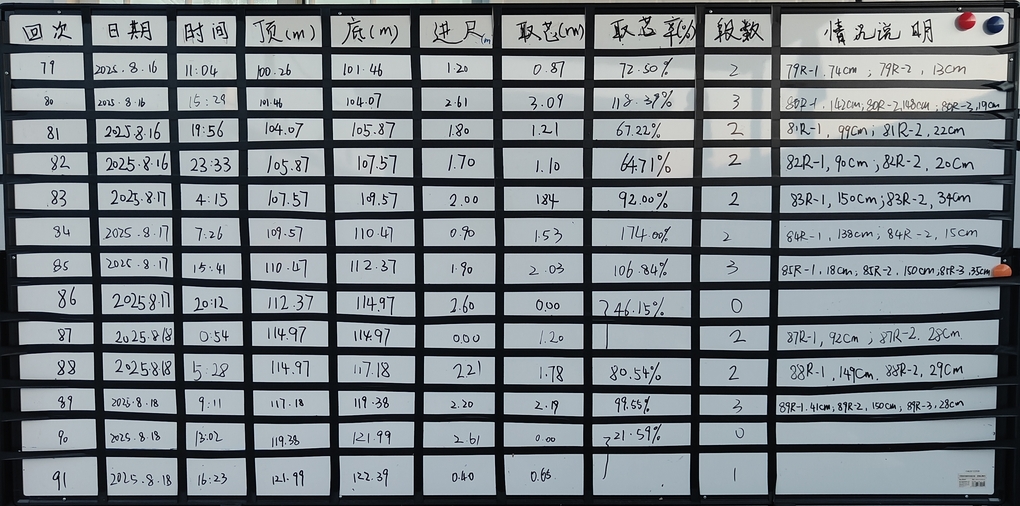 回次 日期 时间 顶(m) 底(m) 进尺(m) 取芯(m) 取芯率(%) 段数 情况说明
79 2025.8.16 11:04 100.26 101.46 1.20 0.87 72.50% 2 79R-1.74cm; 79R-2, 13cm
80 2025.8.16 15:29 101.46 104.07 2.61 3.09 118.39% 3 80R-1.142cm; 80R-2,148cm; 80R-3,19cm
81 2025.8.16 19:56 104.07 105.87 1.80 1.21 67.22% 2 81R-1, 99cm; 81R-2, 22cm
82 2025.8.16 23:33 105.87 107.57 1.70 1.10 64.71% 2 82R-1, 90cm; 82R-2, 20cm
83 2025.8.17 4:15 107.57 109.57 2.00 184 92.00% 2 83R-1, 150cm; 83R-2, 34cm
84 2025.8.17 7:26 109.57 110.47 0.90 1.53 174.00% 2 84R-1, 138cm; 84R-2, 15cm
85 2025.8.17 15:41 110.47 112.37 1.90 2.03 106.84% 3 85R-1.18cm; 85R-2, 150cm; 85R-3.35cm
86 2025.8.17 20:12 112.37 114.97 2.60 0.00 46.15% 0
87 2025.8.18 0:54 114.97 114.97 0.00 1.20 2 87R-1, 92cm; 87R-2. 28cm
88 2025.8.18 5:28 114.97 117.18 2.21 1.78 80.54% 2 88R-1, 149cm. 88R-2, 29cm
89 2025.8.18 9:11 117.18 119.38 2.20 2.19 99.55% 3 89R-1.41cm; 89R-2, 150cm; 89R-3.28cm
90 2025.8.18 13:02 119.38 121.99 2.61 0.00 21.59% 0
91 2025.8.18 16:23 121.99 122.39 0.40 0.65 1